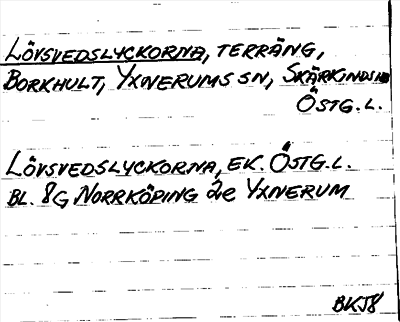 LÖVSVEDSLYCKORNA, TERRÄNG,
BORKHULT, YXNERUMS SN, SKÄRKINDS HD
ÖSTG. L.
LÖVSVEDSLYCKORNA, EK. ÖSTG. L.
BL. 8G NORRKÖPING 2e YXNERUM
BKJ8